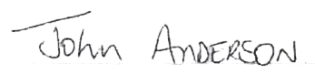 John ANDERSON